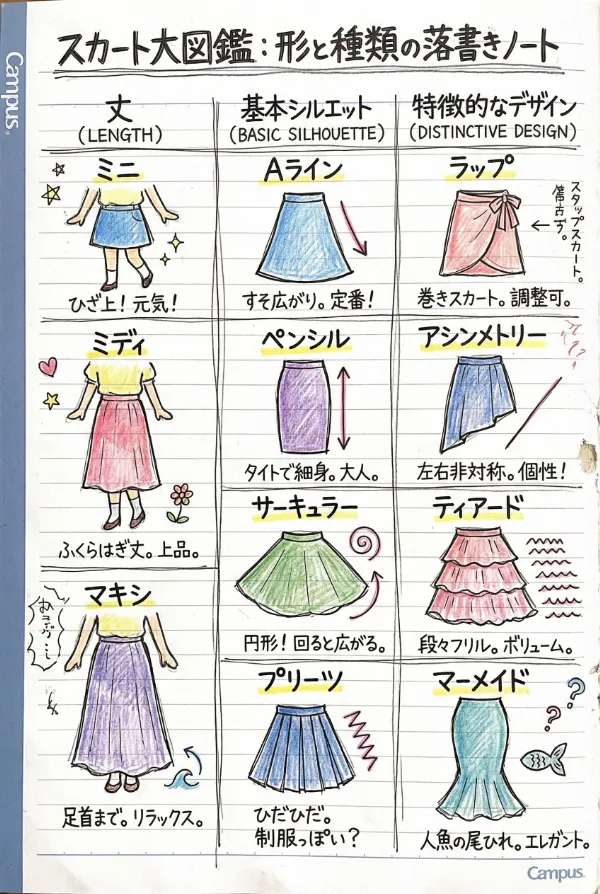 Campus
スカート大図鑑：形と種類の落書きノート
丈
(LENGTH)
ミニ
ひざ上！元気！
ミディ
ふくらはぎ丈。上品。
マキシ
足首まで。リラックス。
基本シルエット
(BASIC SILHOUETTE)
Aライン
すそ広がり。定番！
ペンシル
タイトで細身。大人。
サーキュラー
円形！回ると広がる。
プリーツ
ひだひだ。
制服っぽい？
特徴的なデザイン
(DISTINCTIVE DESIGN)
ラップ
スタップスカート。
巻きスカート。調整可。
アシンメトリー
左右非対称。個性！
ティアード
段々フリル。ボリューム。
マーメイド
人魚の尾ひれ。エレガント。
Campus